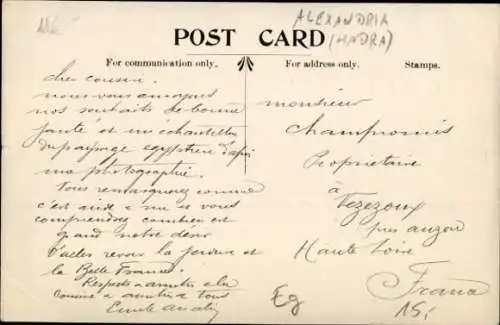 ALEXANDRIA
(HADRA)
POST CARD
For communication only.
For address only.
Stamps.
cher cousin.
nous vous envoyons
nos souhaits de bonne
santé et un échantillon
du paysage egyptien d'après
ma photographie.
Vous remarquerez comme
c'est aride & nu et vous
comprendrez combien est
grand notre désir
d'aller revoir la verdure et
la Belle France.
Respects & amitiés à la
& amitiés à tous
Emile
monsieur
Champromis
Propriétaire
à
Vezezoux
près auzon
Haute Loire
France
Eg
15,-